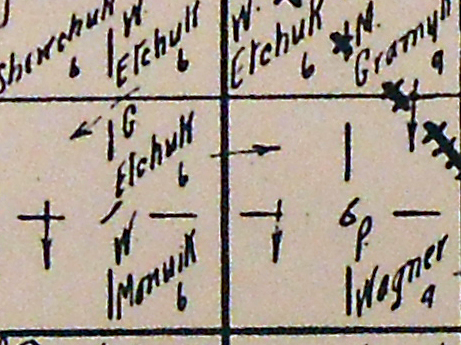 Shewchuk
6
W
Etchuk
6
W.
Etchuk
6
N.
Gramyk
9
G
Etchuk
6
W
Manuik
6
6
P.
Wagner
9